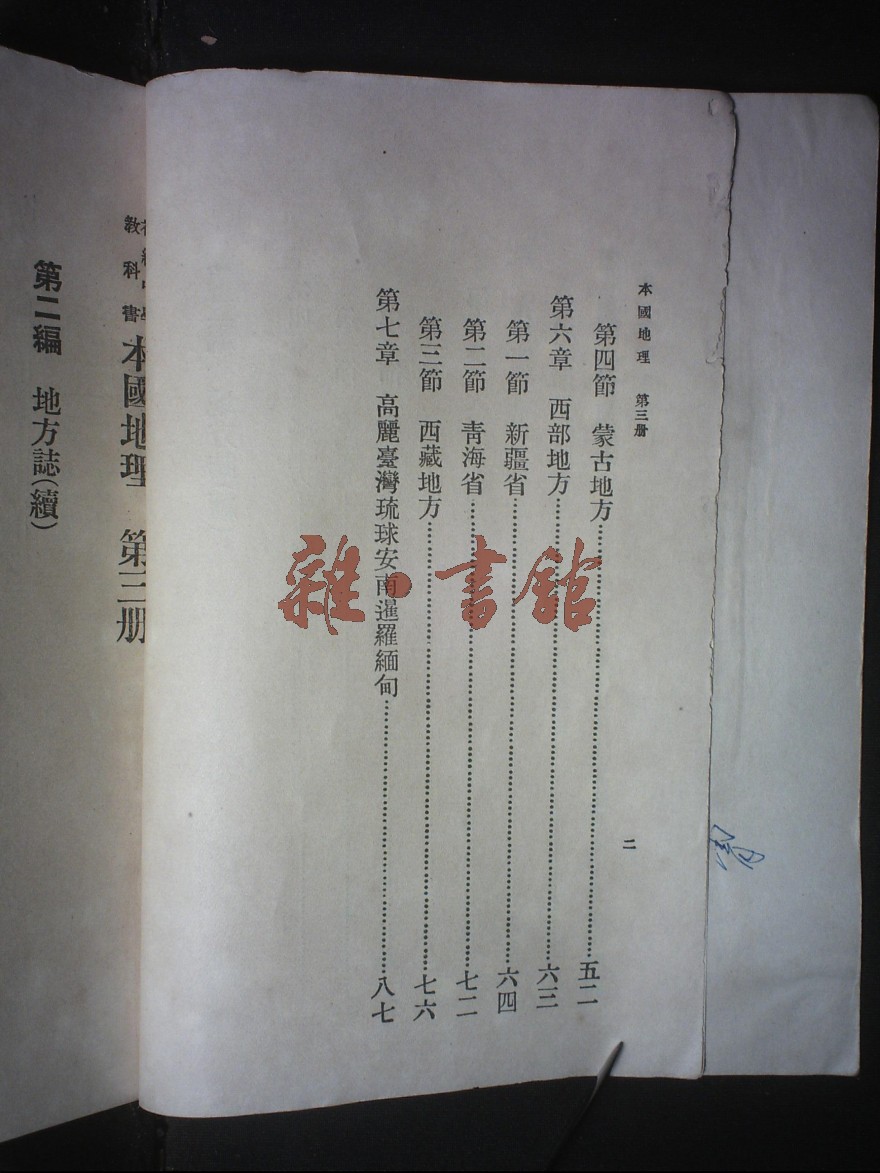 本國地理 第三册
二
第四節 蒙古地方…………五二
第六章 西部地方…………六三
第一節 新疆省…………六四
第二節 青海省…………七二
第三節 西藏地方…………七六
第七章 高麗臺灣琉球安南暹羅緬甸…………八七
教科書
本國地理 第三册
第二編 地方誌(續)
雜·書館